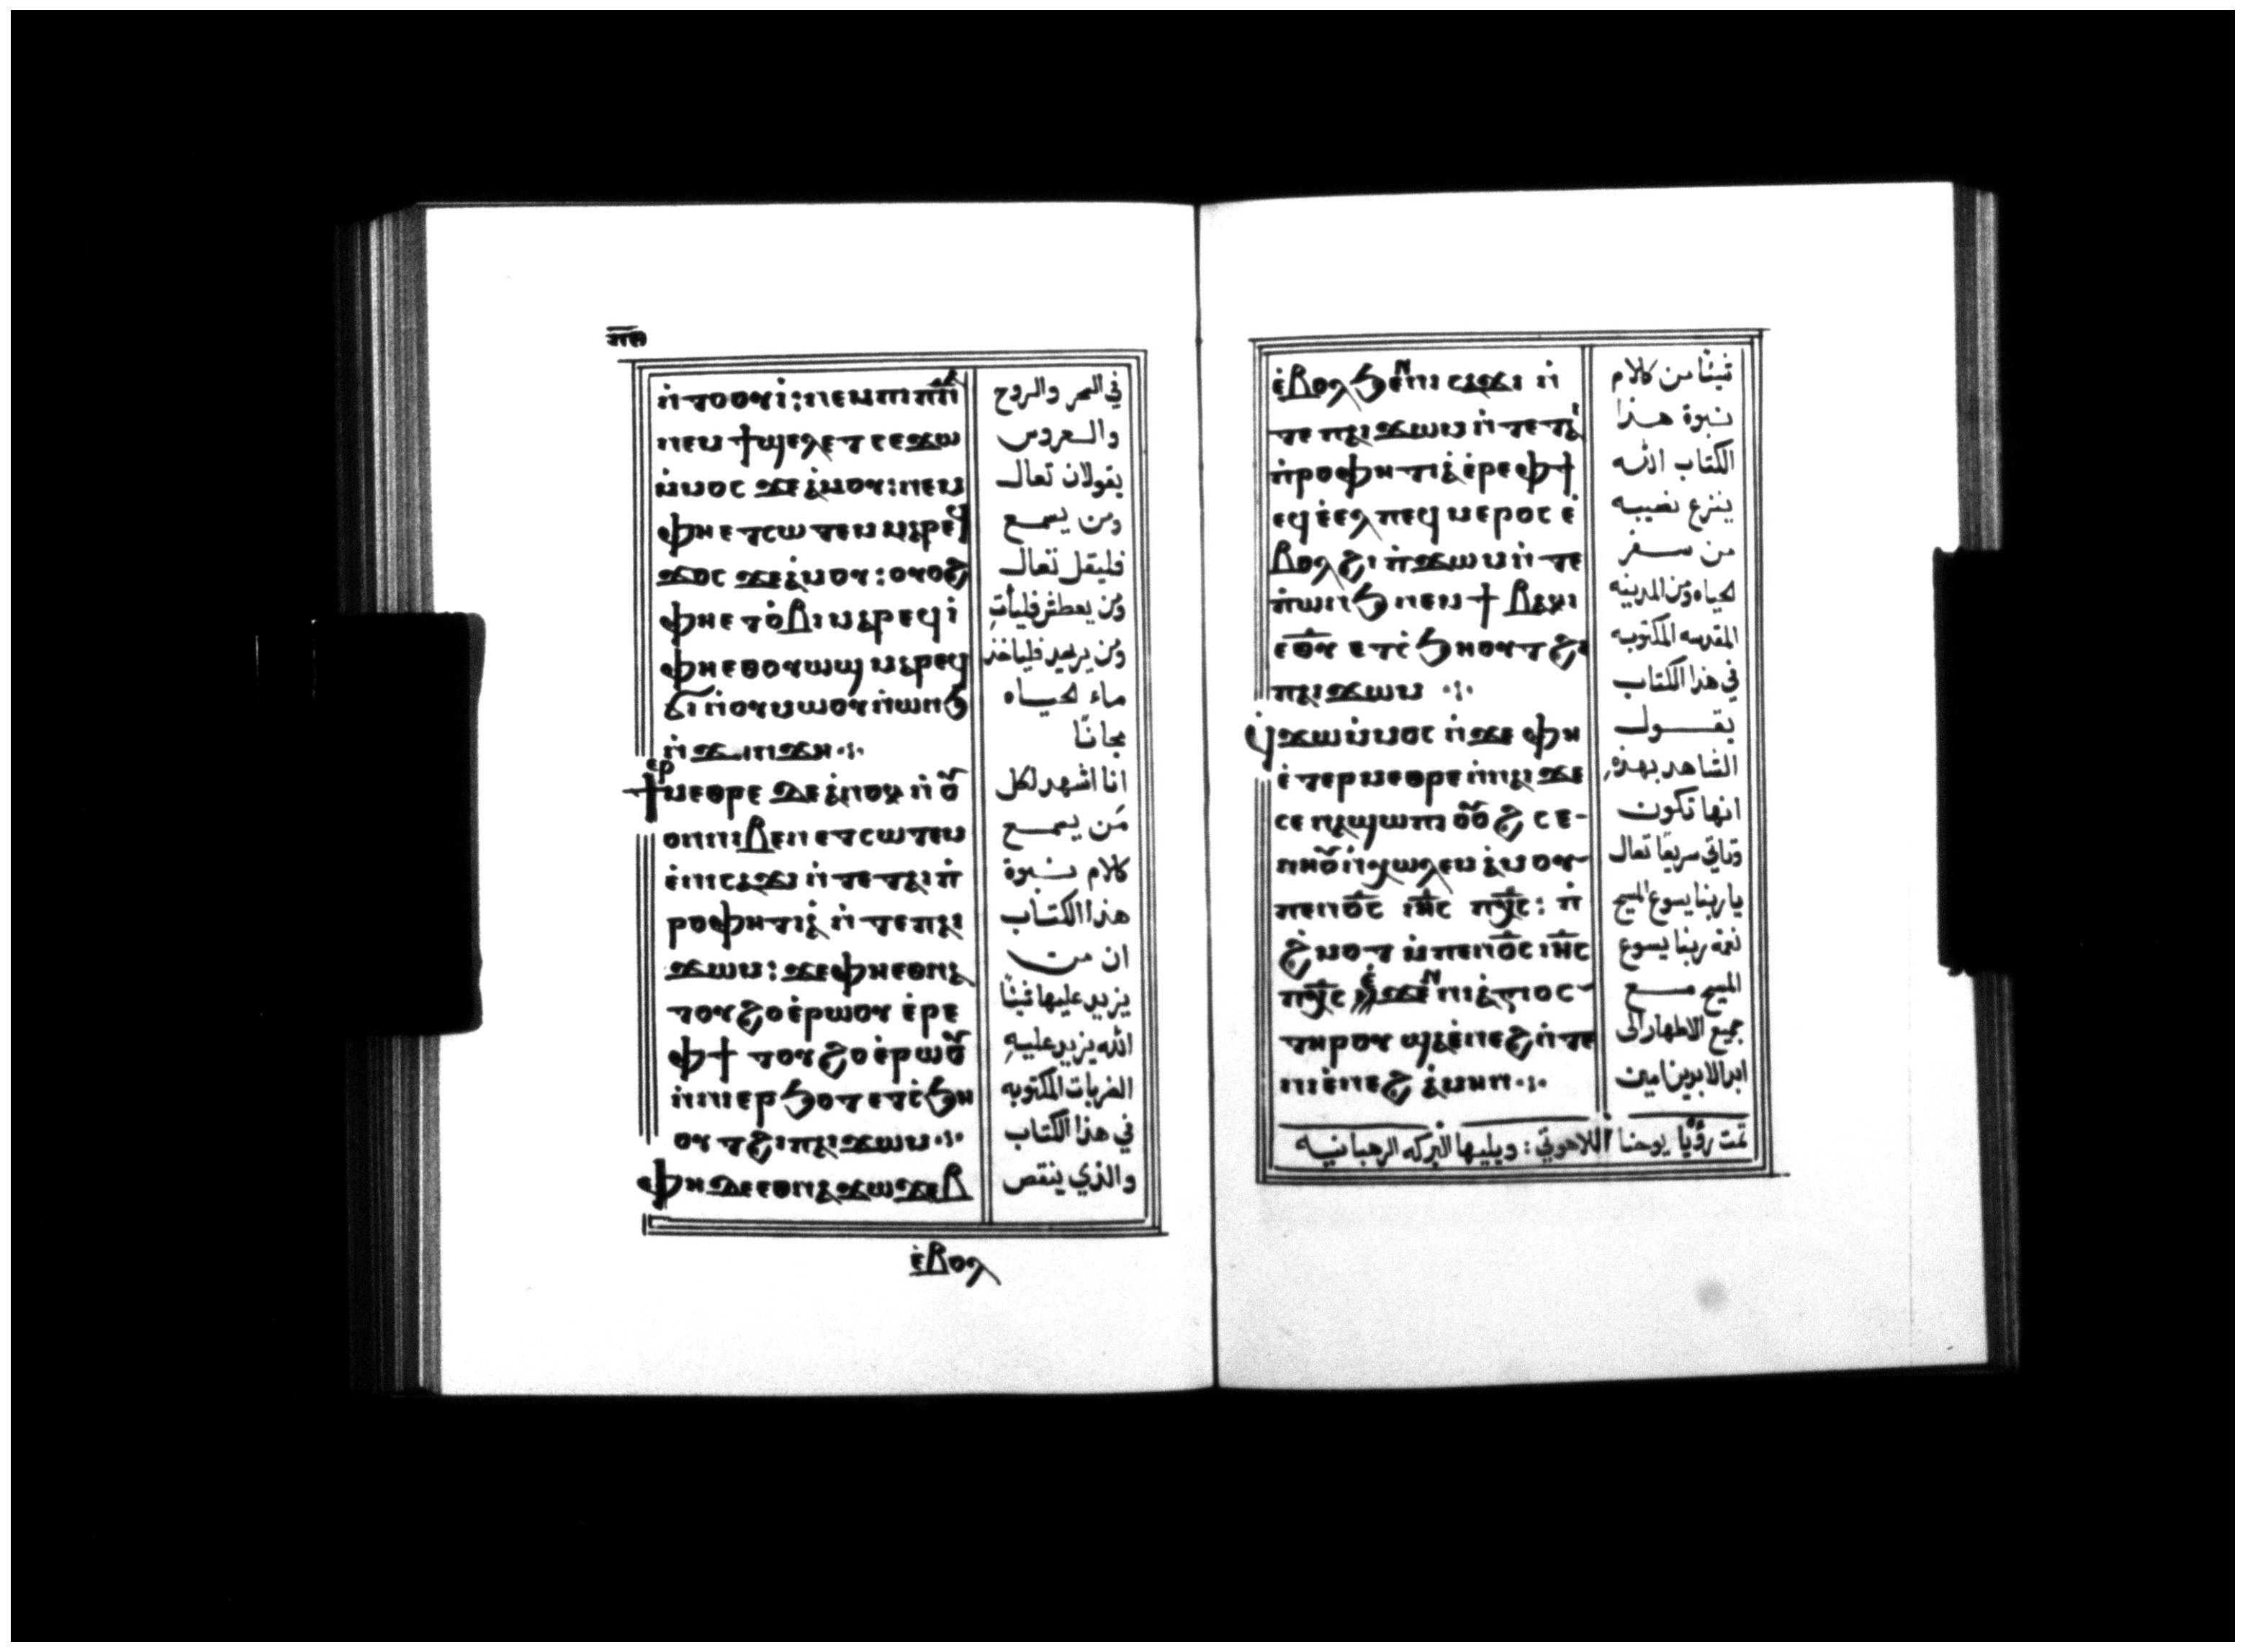 ⲛ̀ⲧⲟⲟⲩⲓ̀: ⲛⲉⲙ ⲡⲓⲡⲛ̅ⲁ̅
ⲛⲉⲙ ϯϣⲉⲗⲉⲧ ⲥⲉϫⲱ
ⲙ̀ⲙⲟⲥ ϫⲉ ⲁ̀ⲙⲟⲩ: ⲛⲉⲙ
ⲫⲏ ⲉⲧⲥⲱⲧⲉⲙ ⲙⲁⲣⲉϥ
ϫⲟⲥ ϫⲉ ⲁ̀ⲙⲟⲩ: ⲟⲩⲟϩ
ⲫⲏ ⲉⲧⲟ̀ⲃⲓ ⲙⲁⲣⲉϥⲓ̀
ⲫⲏ ⲉⲑⲟⲩⲱϣ ⲙⲁⲣⲉϥ
ϭⲓ ⲛ̀ⲟⲩⲙⲱⲟⲩ ⲛ̀ⲱⲛϧ
ⲛ̀ϫⲓⲛϫⲏ ⁘
ϯⲉⲣⲙⲉⲑⲣⲉ ϫⲉ ⲁ̀ⲛⲟⲕ ⲛ̀ⲟⲩ
ⲟⲛ ⲛⲓⲃⲉⲛ ⲉⲧⲥⲱⲧⲉⲙ
ⲉ̀ⲛⲓⲥⲁϫⲓ ⲛ̀ⲧⲉ ⲧⲁⲓⲡ̀
ⲣⲟⲫⲏⲧⲓⲁ̀ ⲛ̀ⲧⲉ ⲡⲁⲓ
ϫⲱⲙ: ϫⲉ ⲫⲏ ⲉⲑⲛⲁ
ⲧⲟⲩϩⲟ ⲉ̀ⲣⲱⲟⲩ ⲉ̀ⲣⲉ
ⲫϯ ⲧⲟⲩϩⲟ ⲉ̀ⲣⲱⲟⲩ
ⲛ̀ⲛⲓⲉⲣϧⲟⲧ ⲉⲧⲥ̀ϧⲏ
ⲟⲩⲧ ϩⲓ ⲡⲁⲓϫⲱⲙ ⁘
ⲫⲏ ⲇⲉ ⲉⲑⲛⲁϫⲱϫⲉⲃ
ⲉ̀ⲃⲟⲗ
في السحر والروح
والعروس
يقولان تعال
ومن يسمع
فليقل تعال
ومن يعطش فليأت
ومن يريد فلياخذ
ماء الحياه
مجانًا
انا اشهد لكل
من يسمع
كلام نبوة
هذا الكتاب
ان من
يزيد عليها شيئًا
الله يزيد عليه
الضربات المكتوبه
في هذا الكتاب
والذي ينقص
ⲉ̀ⲃⲟⲗϧⲉⲛ ⲛⲓⲥⲁϫⲓ ⲛ̀
ⲧⲉ ⲡⲁⲓϫⲱⲙ ⲛ̀ⲧⲉ ⲧⲁⲓ
ⲡ̀ⲣⲟⲫⲏⲧⲓⲁ̀ ⲉ̀ⲣⲉ ⲫϯ
ⲉϥⲉ̀ⲉⲗ ⲡⲉϥⲙⲉⲣⲟⲥ ⲉ̀
ⲃⲟⲗϩⲓ ⲡ̀ϫⲱⲙ ⲛ̀ⲧⲉ
ⲡ̀ⲱⲛϧ ⲛⲉⲙ ϯⲃⲁⲕⲓ
ⲉⲑ̅ⲩ ⲉⲧⲥ̀ϧⲏⲟⲩⲧ ϩⲓ
ⲡⲁⲓϫⲱⲙ ⁘
ϥ̀ϫⲱ ⲙ̀ⲙⲟⲥ ⲛ̀ϫⲉ ⲫⲏ
ⲉ̀ⲧⲉⲣⲙⲉⲑⲣⲉ ⲛ̀ⲛⲁⲓ ϫⲉ
ⲥⲉⲛⲁϣⲱⲡⲓ ⲟⲩⲟϩ ⲥⲉ-
ⲛⲏⲟⲩ ⲛ̀ⲭⲱⲗⲉⲙ ⲁ̀ⲙⲟⲩ
ⲡⲉⲛⲟ̅ⲥ ⲓⲏ̅ⲥ ⲡⲭ̅ⲥ: ⲡ̀
ϩⲙⲟⲧ ⲙ̀ⲡⲉⲛⲟ̅ⲥ ⲓⲏ̅ⲥ
ⲡⲭ̅ⲥ ⲉ̀ϫⲉⲛ ⲛⲓⲁ̀ⲅⲓⲟⲥ
ⲧⲏⲣⲟⲩ ϣⲁ ⲉ̀ⲛⲉϩ ⲛ̀ⲧⲉ
ⲛⲓⲉ̀ⲛⲉϩ ⲁ̀ⲙⲏⲛ ⁘
شيئًا من كلام
نبوة هذا
الكتاب الله
ينزع نصيبه
من سفر
الحياه ومن المدينه
المقدسه المكتوبه
في هذا الكتاب
يقول
الشاهد بهذه
انها تكون
وتاتي سريعًا تعال
يا ربنا يسوع المسيح
نعمة ربنا يسوع
المسيح مع
جميع الاطهار الى
ابد الابدين امين
تمت رؤيا يوحنا اللاهوتي : ويليها البركه الرهبانيه